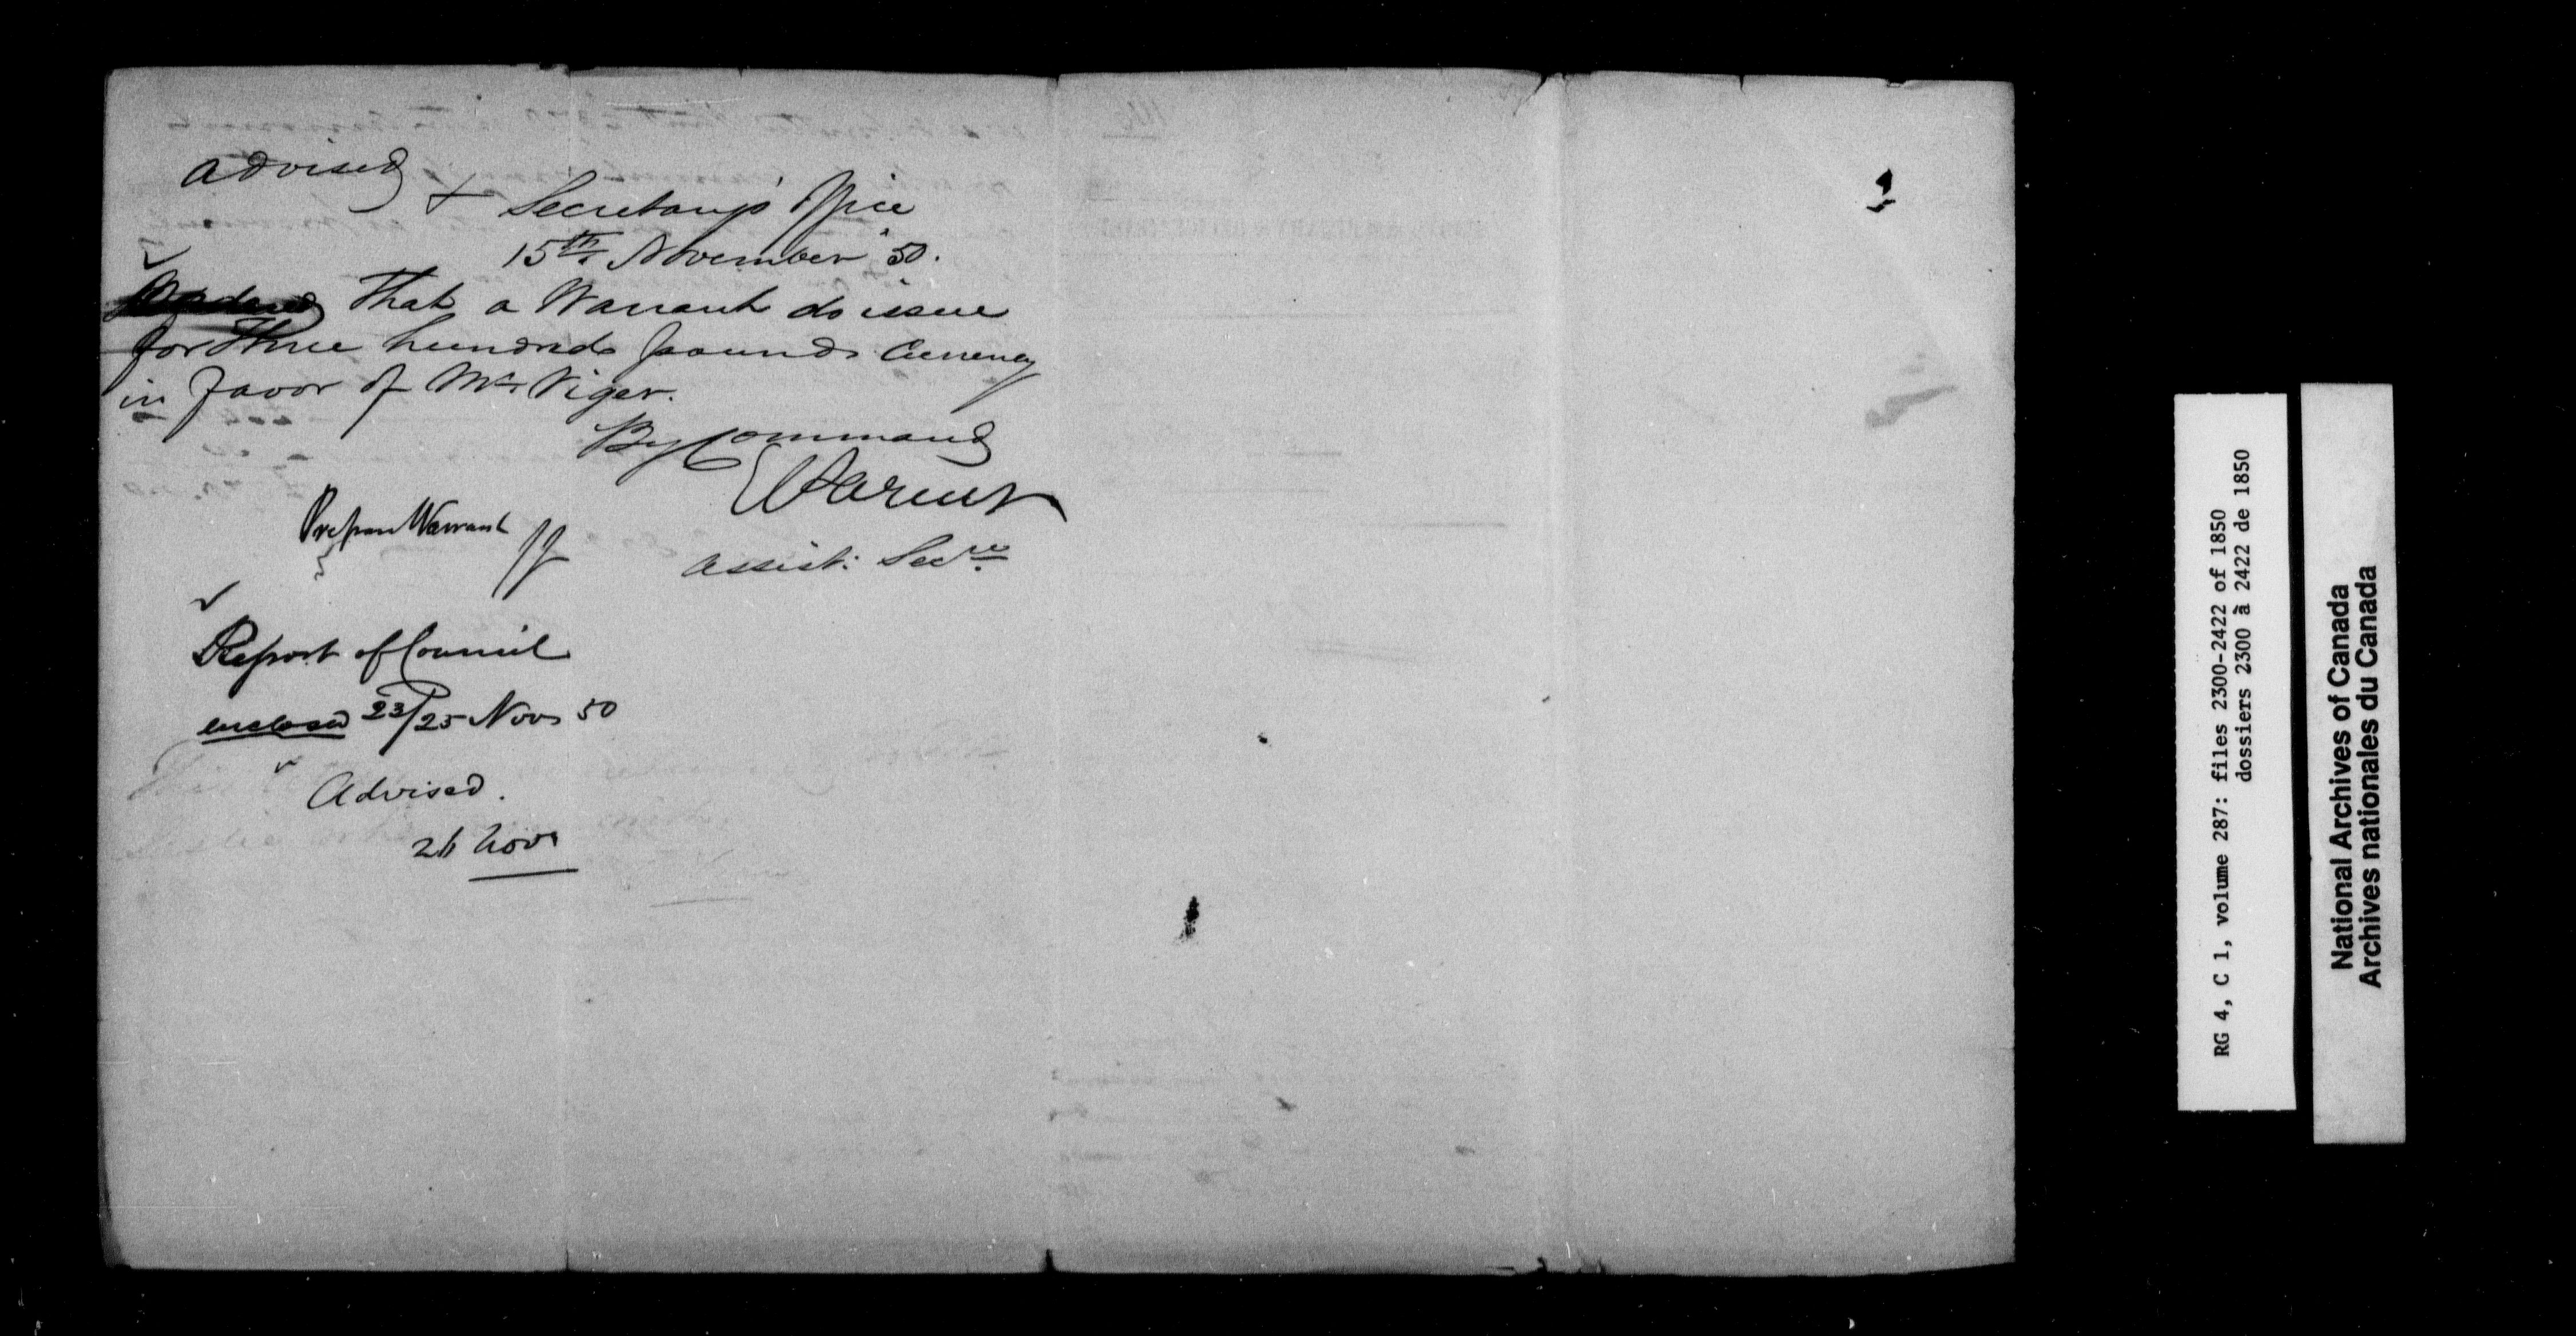 advised
+ Secretary's Office
15th. November 50.
Ordered That a Warrant do issue
for Three hundred pounds Currency
in favor of Mr. Viger.
By Command
E Parent
Assist: Secre.
Prepare Warrant
Report of Council
enclosed 23/25 Novr 50
Advised.
26 Novr
RG 4, C 1, volume 287: files 2300-2422 of 1850
dossiers 2300 à 2422 de 1850
National Archives of Canada
Archives nationales du Canada